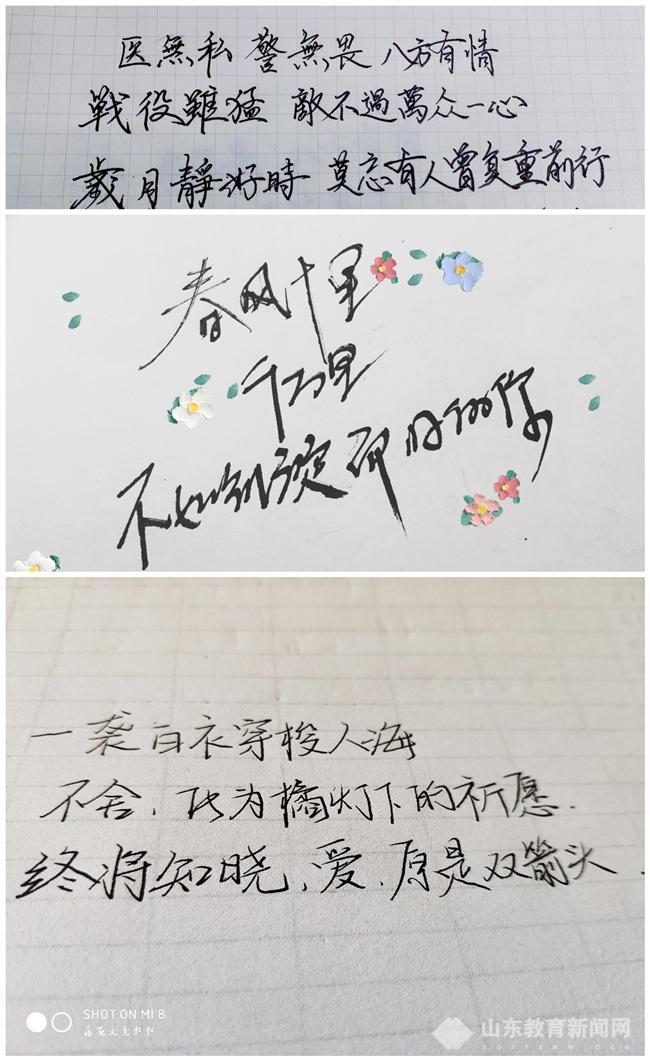 医無私 警無畏 八方有情
戦役雖猛 敵不過萬众一心
歲月靜好時 莫忘有人曾负重前行
春风十里
千万里
不如绽放的你
一袭白衣穿梭人海
不舍,化为橘灯下的祈愿.
终将知晓,爱,原是双箭头.
SHOT ON MI 8
山东教育新闻网